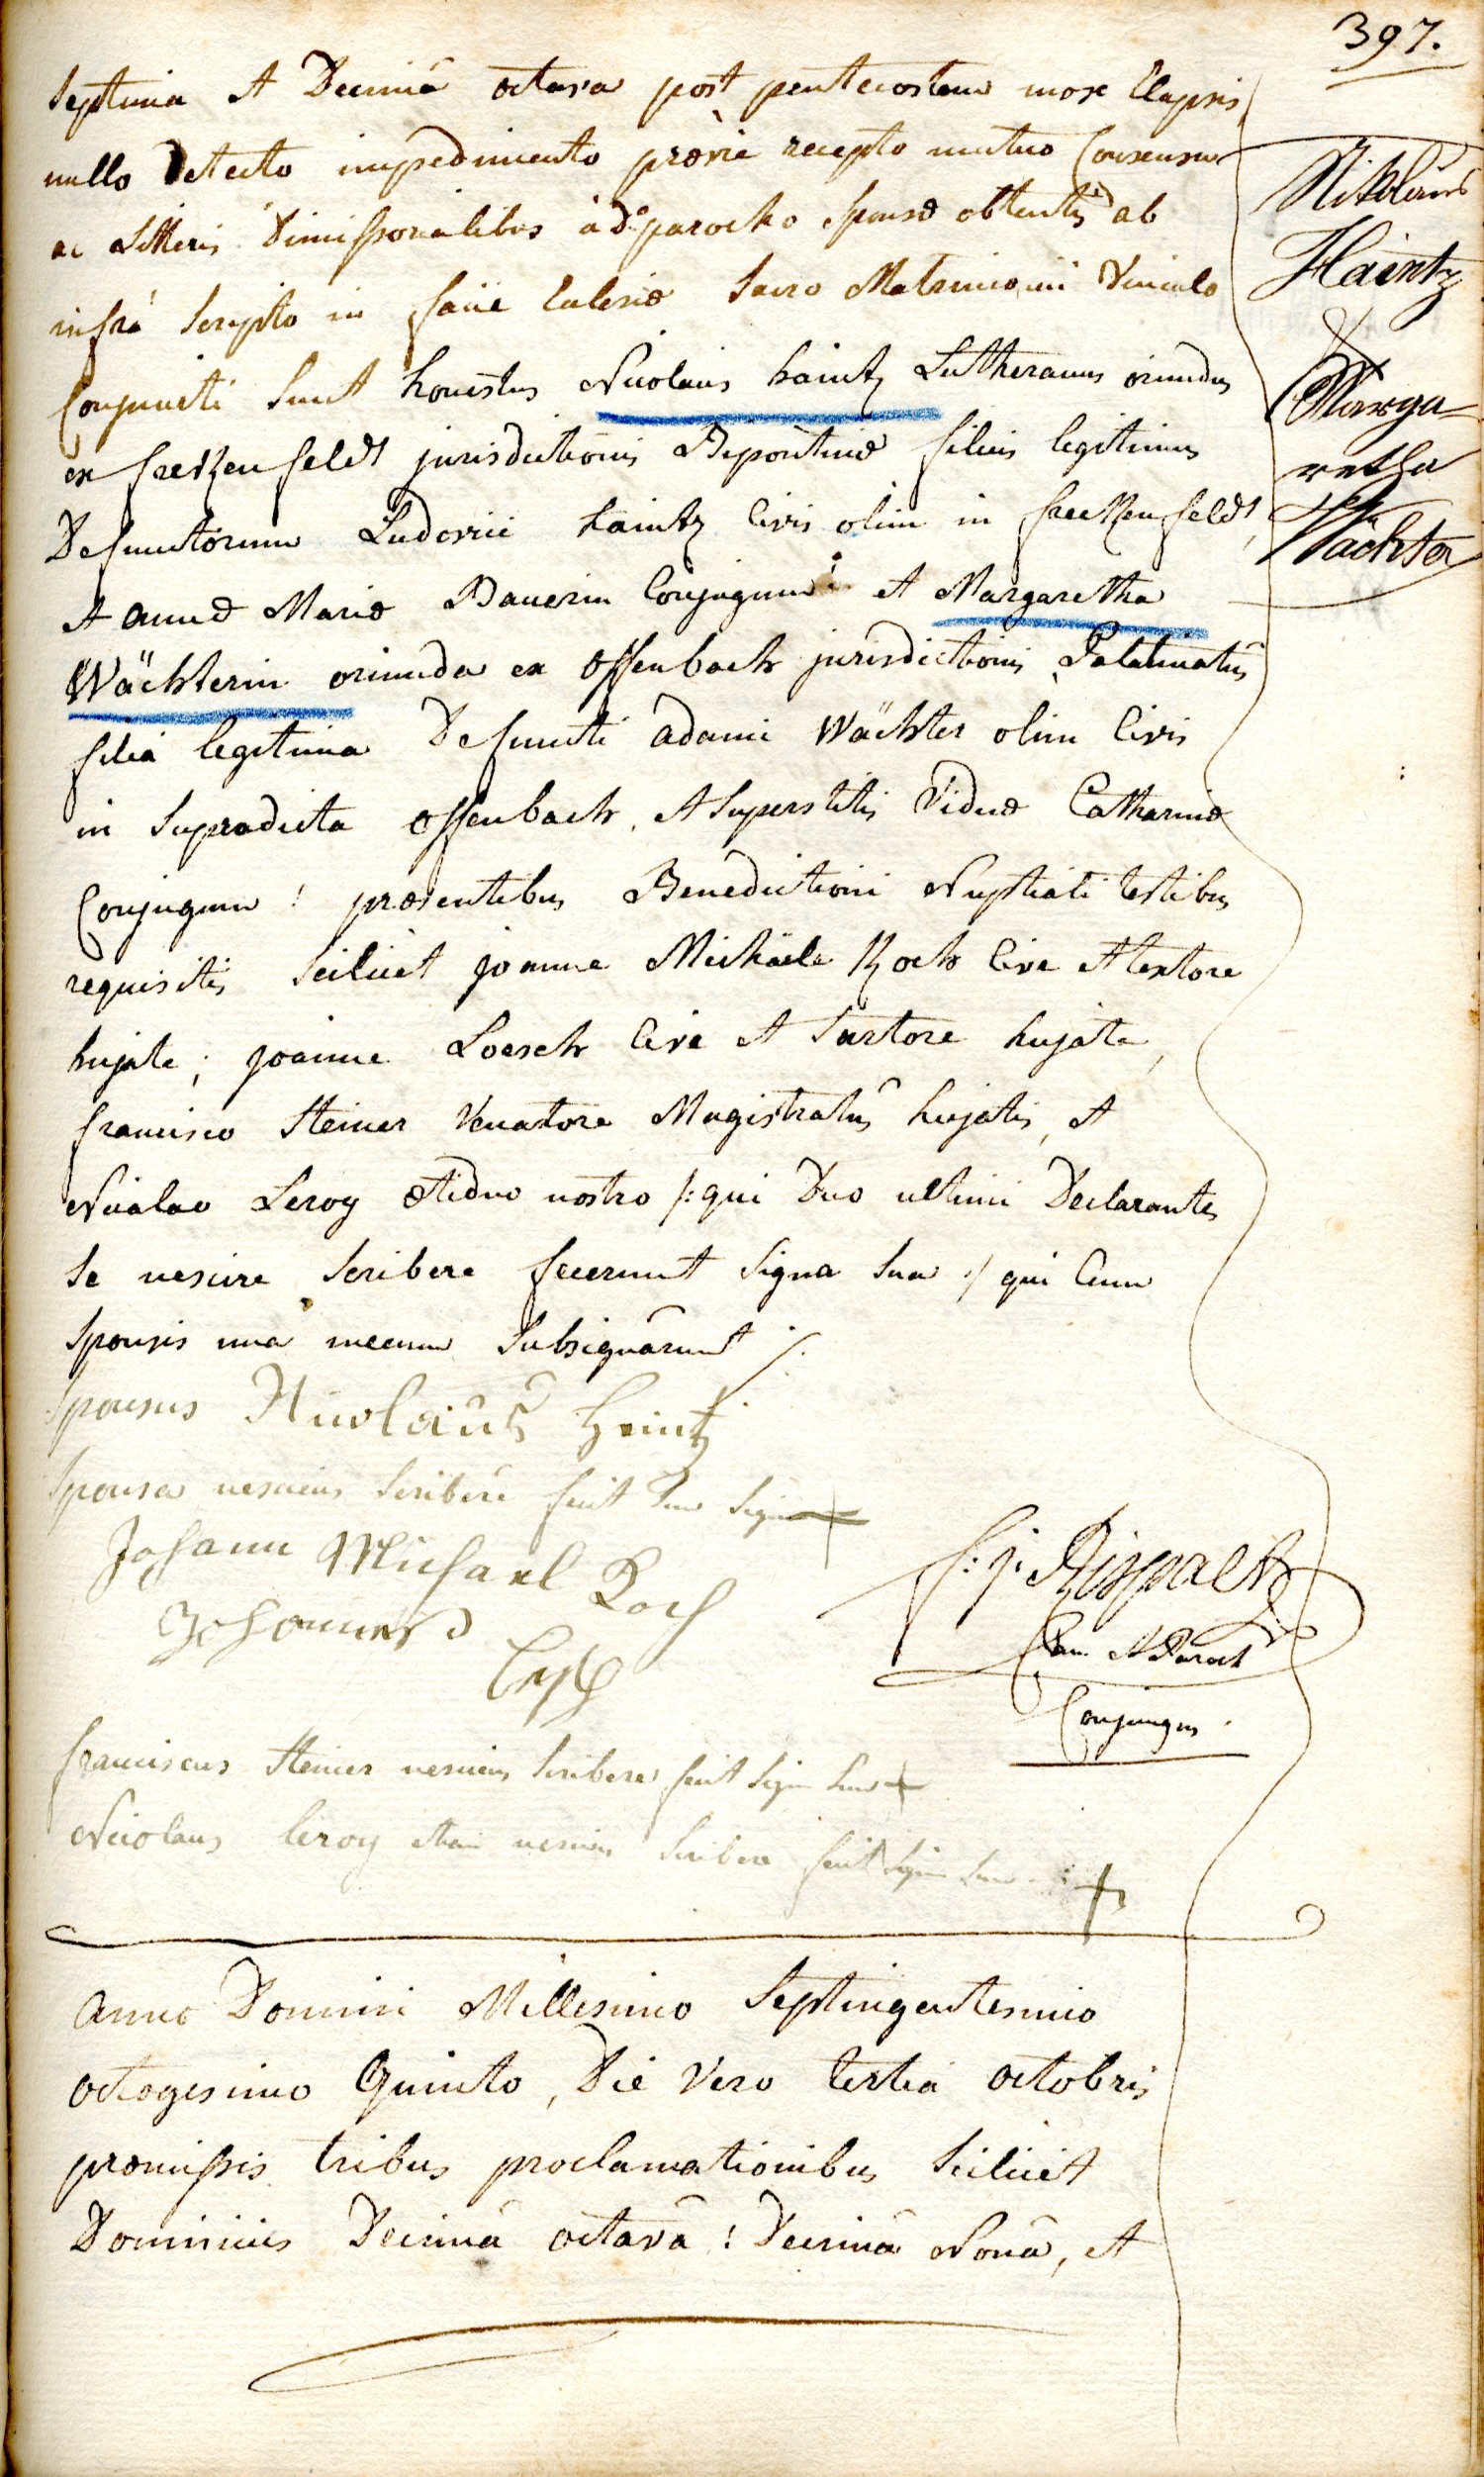 397.
Septima et Decimâ octava post pentecosten mox Elapsis
nullo Detecto impedimento prævie recepto mutuo Consensu
ac Litteris Dimissorialibus à Dno parocho sponsæ obtentis, ab
infrà Scripto in facie Ecclesiæ Sacro Matrimonii Vinculo
Conjuncti Sunt honestus Nicolaus haintz Lutheranus oriundus
ex freckenfeldt jurisdictionis Bipontinæ filius legitimus
Defunctorum Ludovici haintz Civis olim in freckenfeldt,
et annæ Mariæ Bauerin Conjugum: et Margaretha
Wächterin oriunda ex Offenbach jurisdictionis Palatinatûs
filia legitima Defuncti adami Wächter olim Civis
in Supradicta Offenbach, et Superstitis Viduæ Catharinæ
Conjugum! præsentibus Benedictioni Nuptiali testibus
requisitis Scilicet joanne Michäele Koch Cive et textore
hujate; joanne Loesch Cive et Sartore hujate,
francisco Steiner Venatore Magistratûs hujatis, et
Nicolao Leroy ædituo nostro /: qui Duo ultimi Declarantes
Se nescire Scribere fecerunt Signa Sua :/ qui Cum
Sponsis una mecum Subsignârunt ∕.
Nikolaus
Haintz
&
Marga-
retha
Wächter
Sponsus Nicolaus Heintz
Sponsa nesciens Scribere fecit Suum Signum +
Johann Michael Koch
Johannes
Lesch
f: j: Rispalt
Can. et Paroch
Conjungens.
franciscus Steiner nesciens Scribere fecit Signum Suum +
Nicolaus leroy etiam nesciens Scribere fecit Signum Suum +
Anno Domini Millesimo Septingentesimo
octogesimo Quinto, Die Vero tertia octobris
præmissis tribus proclamationibus Scilicet
Dominicis Decimâ octavâ: Decimâ Nonâ, et